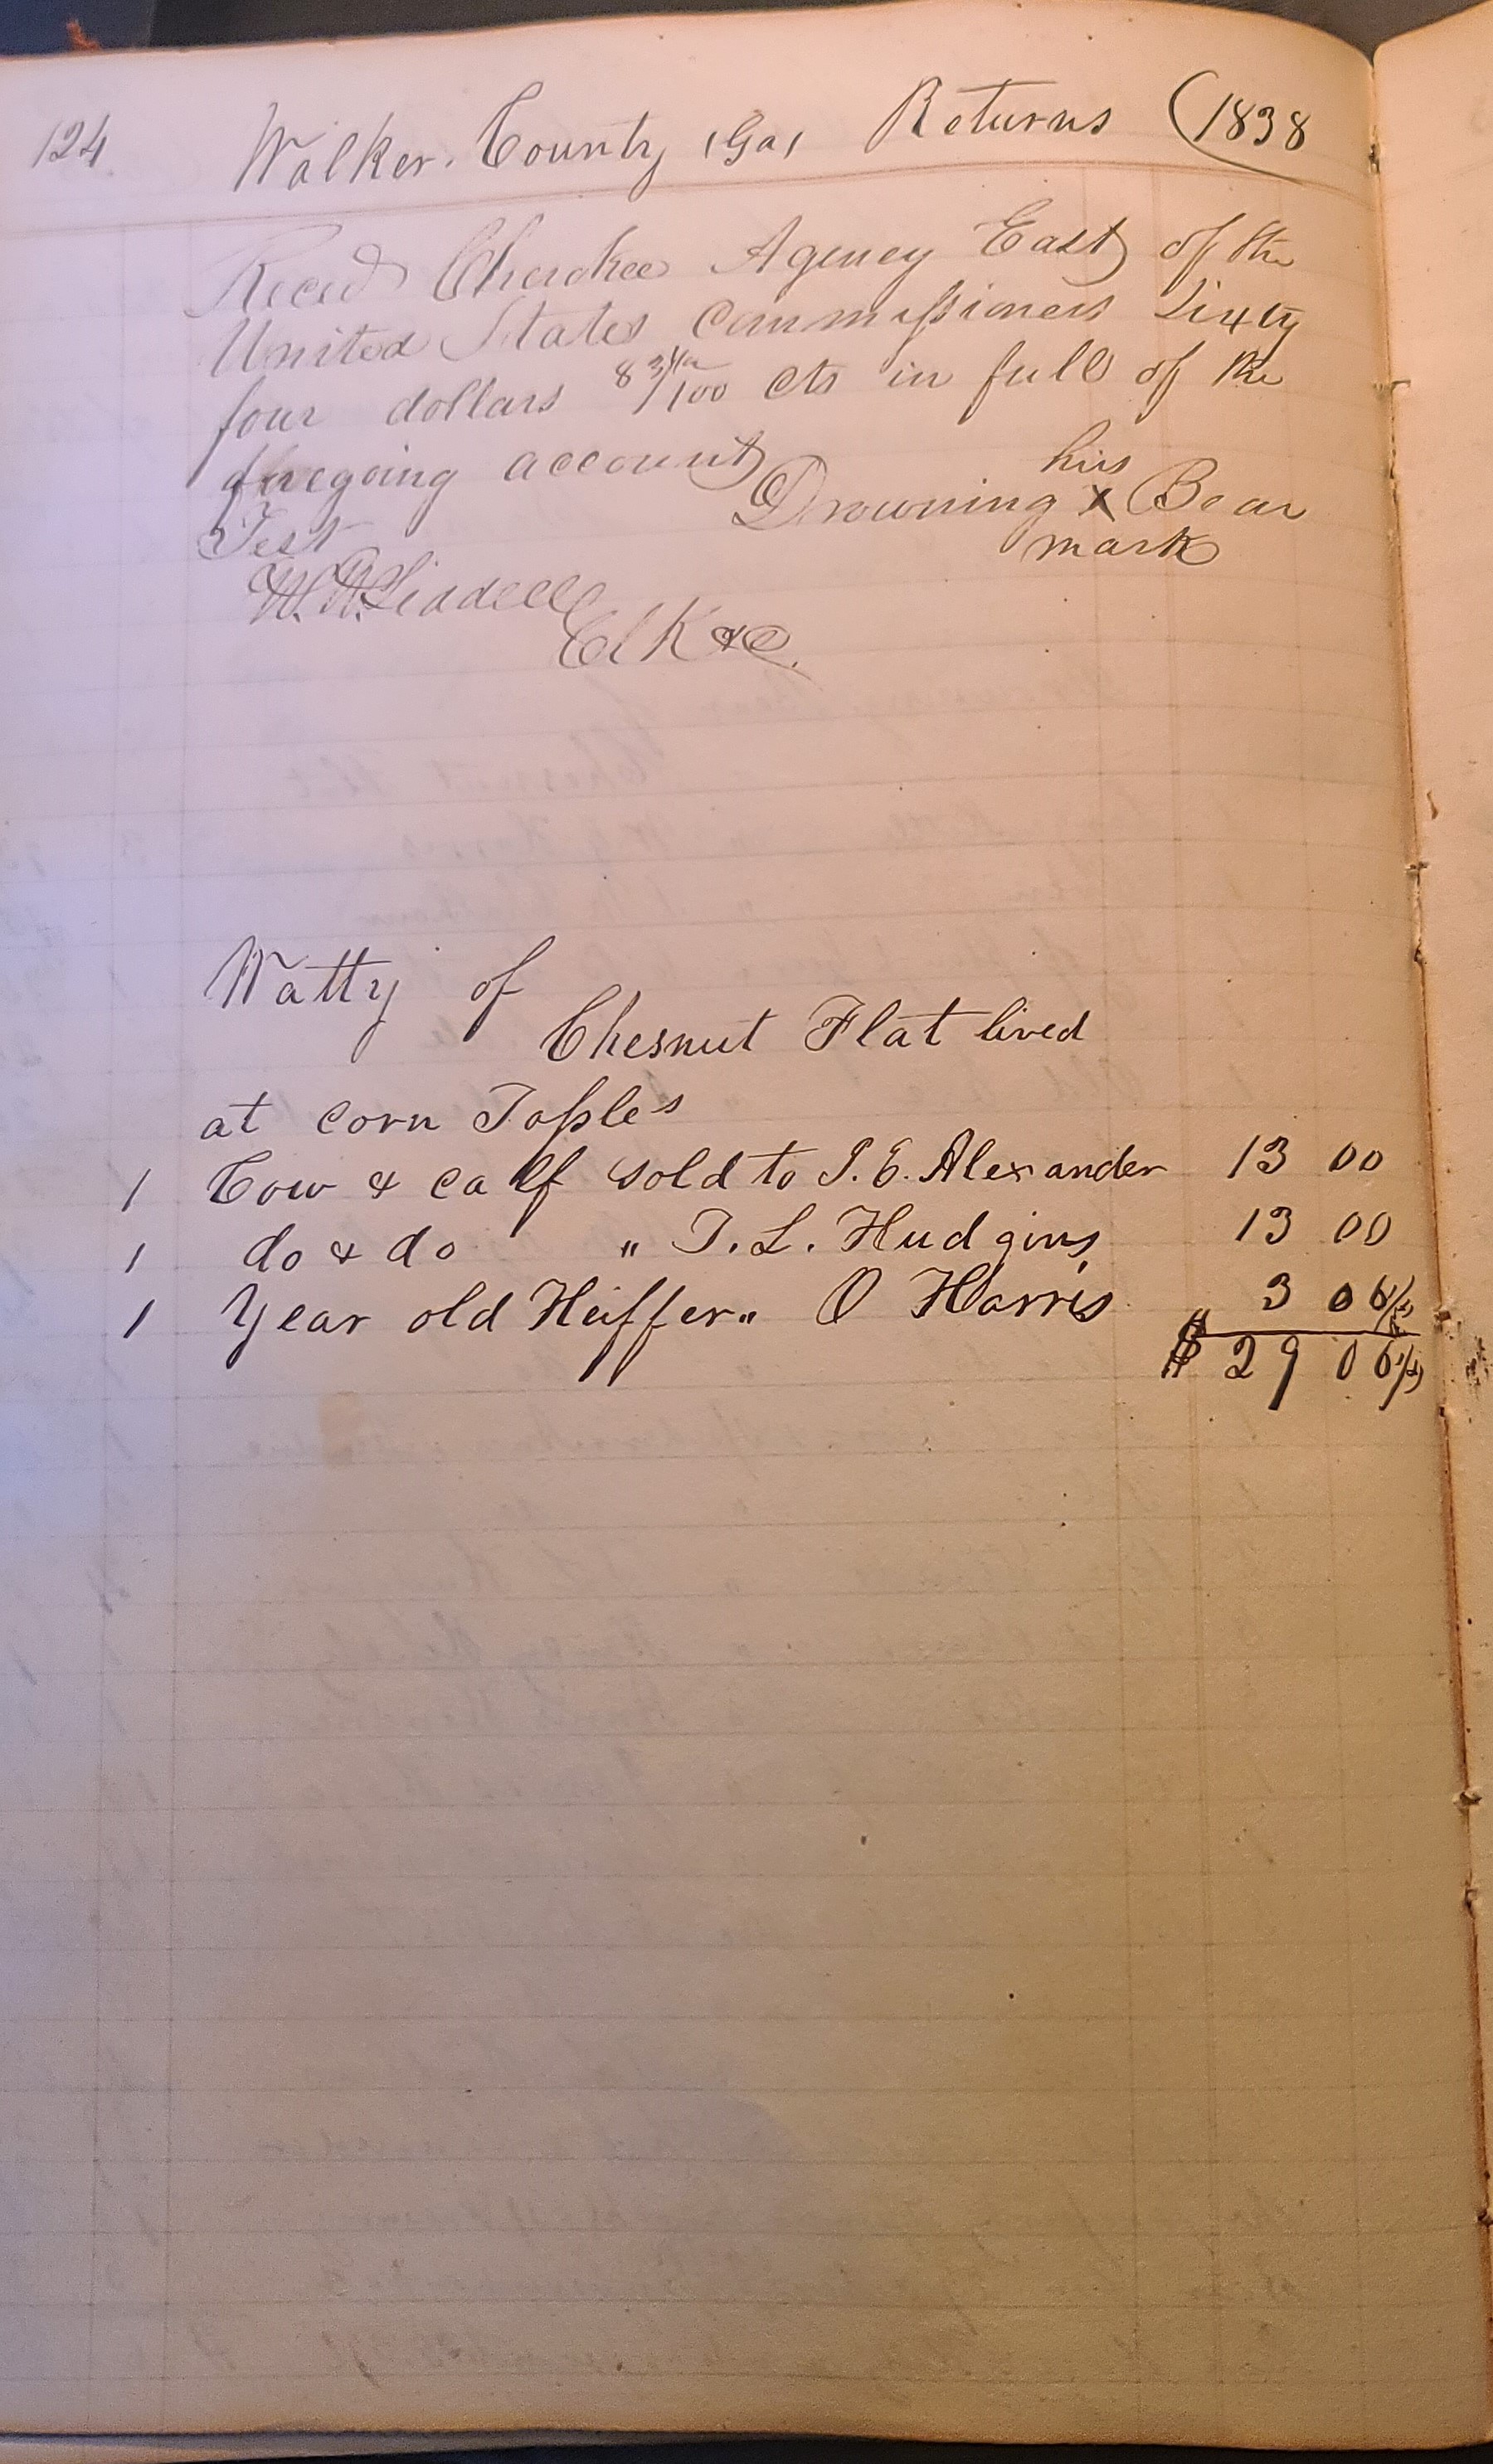 124 Walker County (Ga) Returns (1838
Reced Cherokee Agency East of the
United States Commissioners Sixty
four dollars 8 3/4/100 cts in full of the
foregoing account
his
Drowning X Bear
mark
Test
W. H. Liddell
Clk &c.
Watty of
Chesnut Flat lived
at Corn Tassles
1 Cow & calf sold to J. E. Alexander 13 00
1 do & do " T. L. Hudgins 13 00
1 Year old Heiffer " O Harris " 3 06 1/4
$ 29 06 1/4